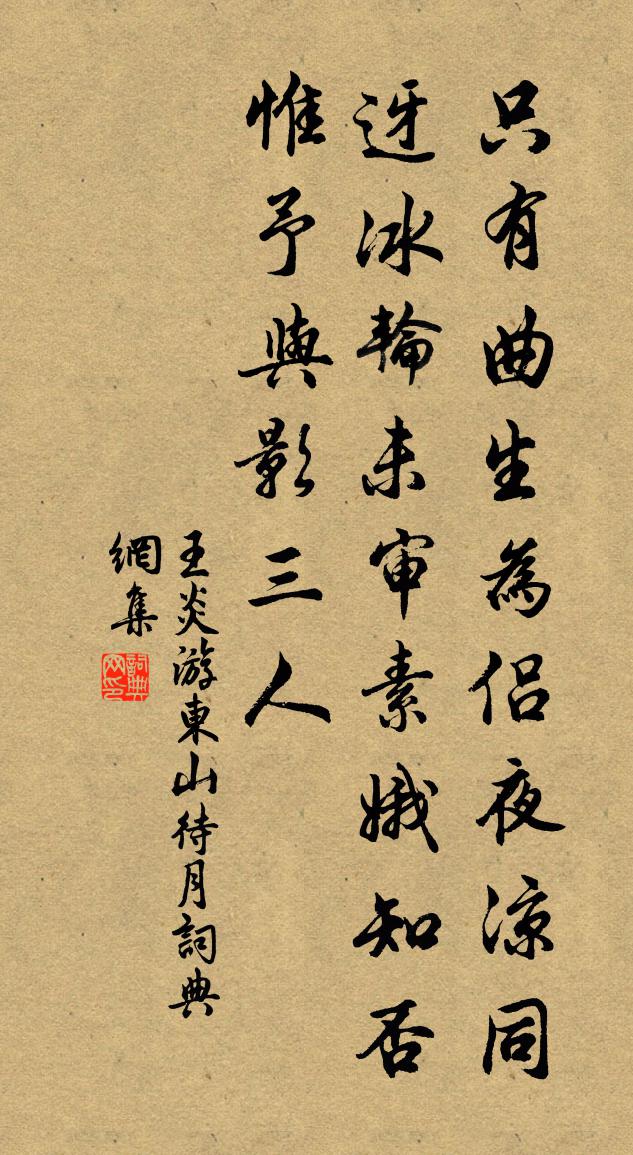 只有曲生為侶夜涼同
迓冰輪未審素娥知否
惟予與影三人
王炎游東山待月詞典
網集
詞典網印